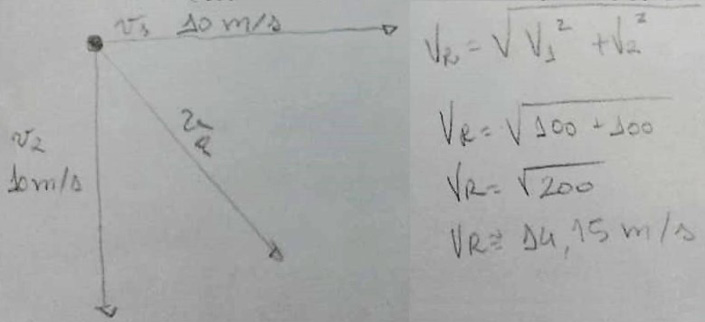 v₁ 10 m/s
v₂
10m/s
v
R
V_R = √V₁² + V₂²
V_R = √100 + 100
V_R = √200
V_R ≅ 14,15 m/s